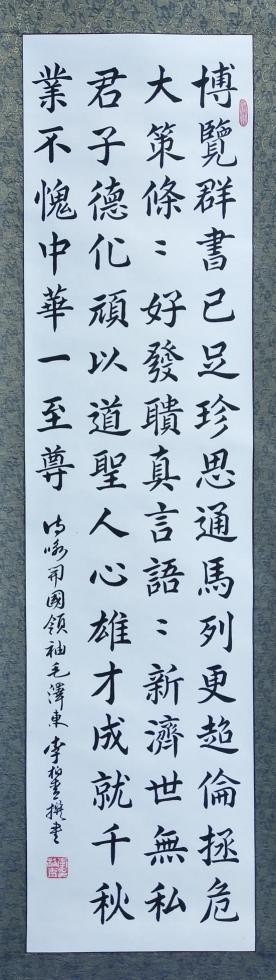 博覽群書已足珍思通馬列更超倫拯危
大策條〻好發聵真言語〻新濟世無私
君子德化頑以道聖人心雄才成就千秋
業不愧中華一至尊
開國領袖毛澤東 李撰書